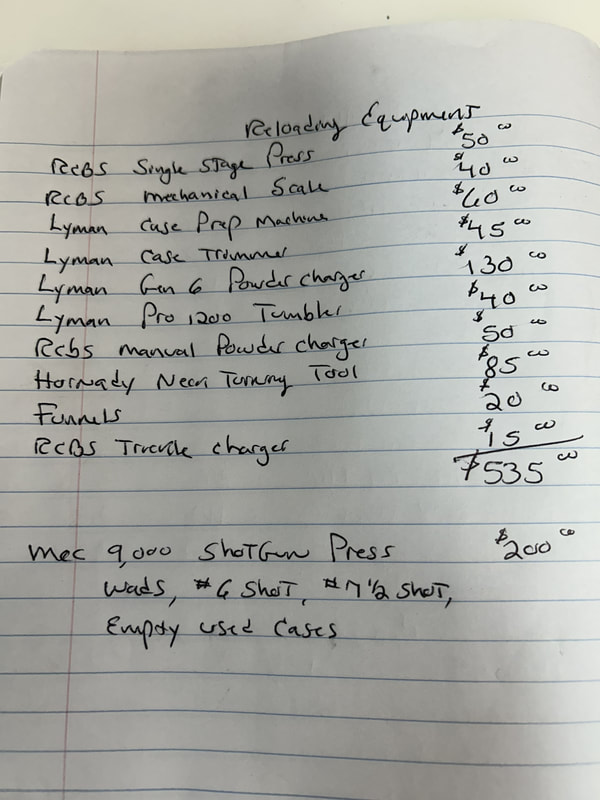 Reloading Equipment
RCBS Single Stage Press $50 00
RCBS mechanical Scale $40 00
Lyman Case Prep Machine $60 00
Lyman Case Trimmer $45 00
Lyman Gen 6 Powder charger $130 00
Lyman Pro 1200 Tumbler $40 00
Rcbs manual Powder charger $50 00
Hornady Neck Turning Tool $85 00
Funnels $20 00
RCBS Trickle charger $15 00
$535 00
Mec 9,000 ShotGun Press $200 00
Wads, #6 Shot, #7 1/2 Shot,
Empty used Cases